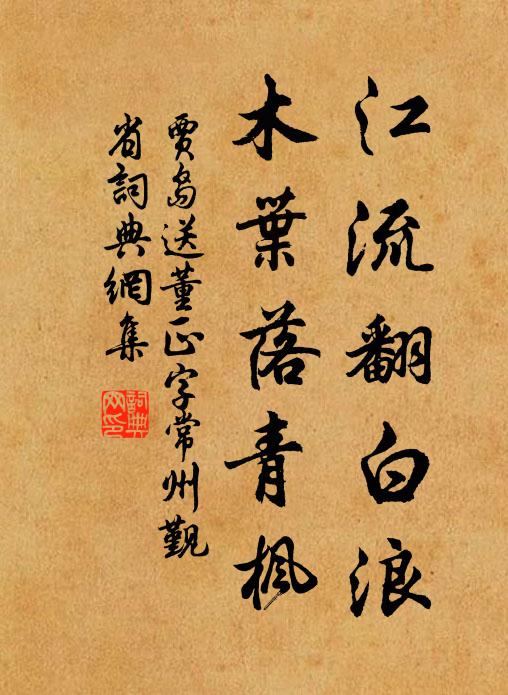 江流翻白浪
木葉落青楓
賈島送董正字常州觐
省詞典網集
詞典网印